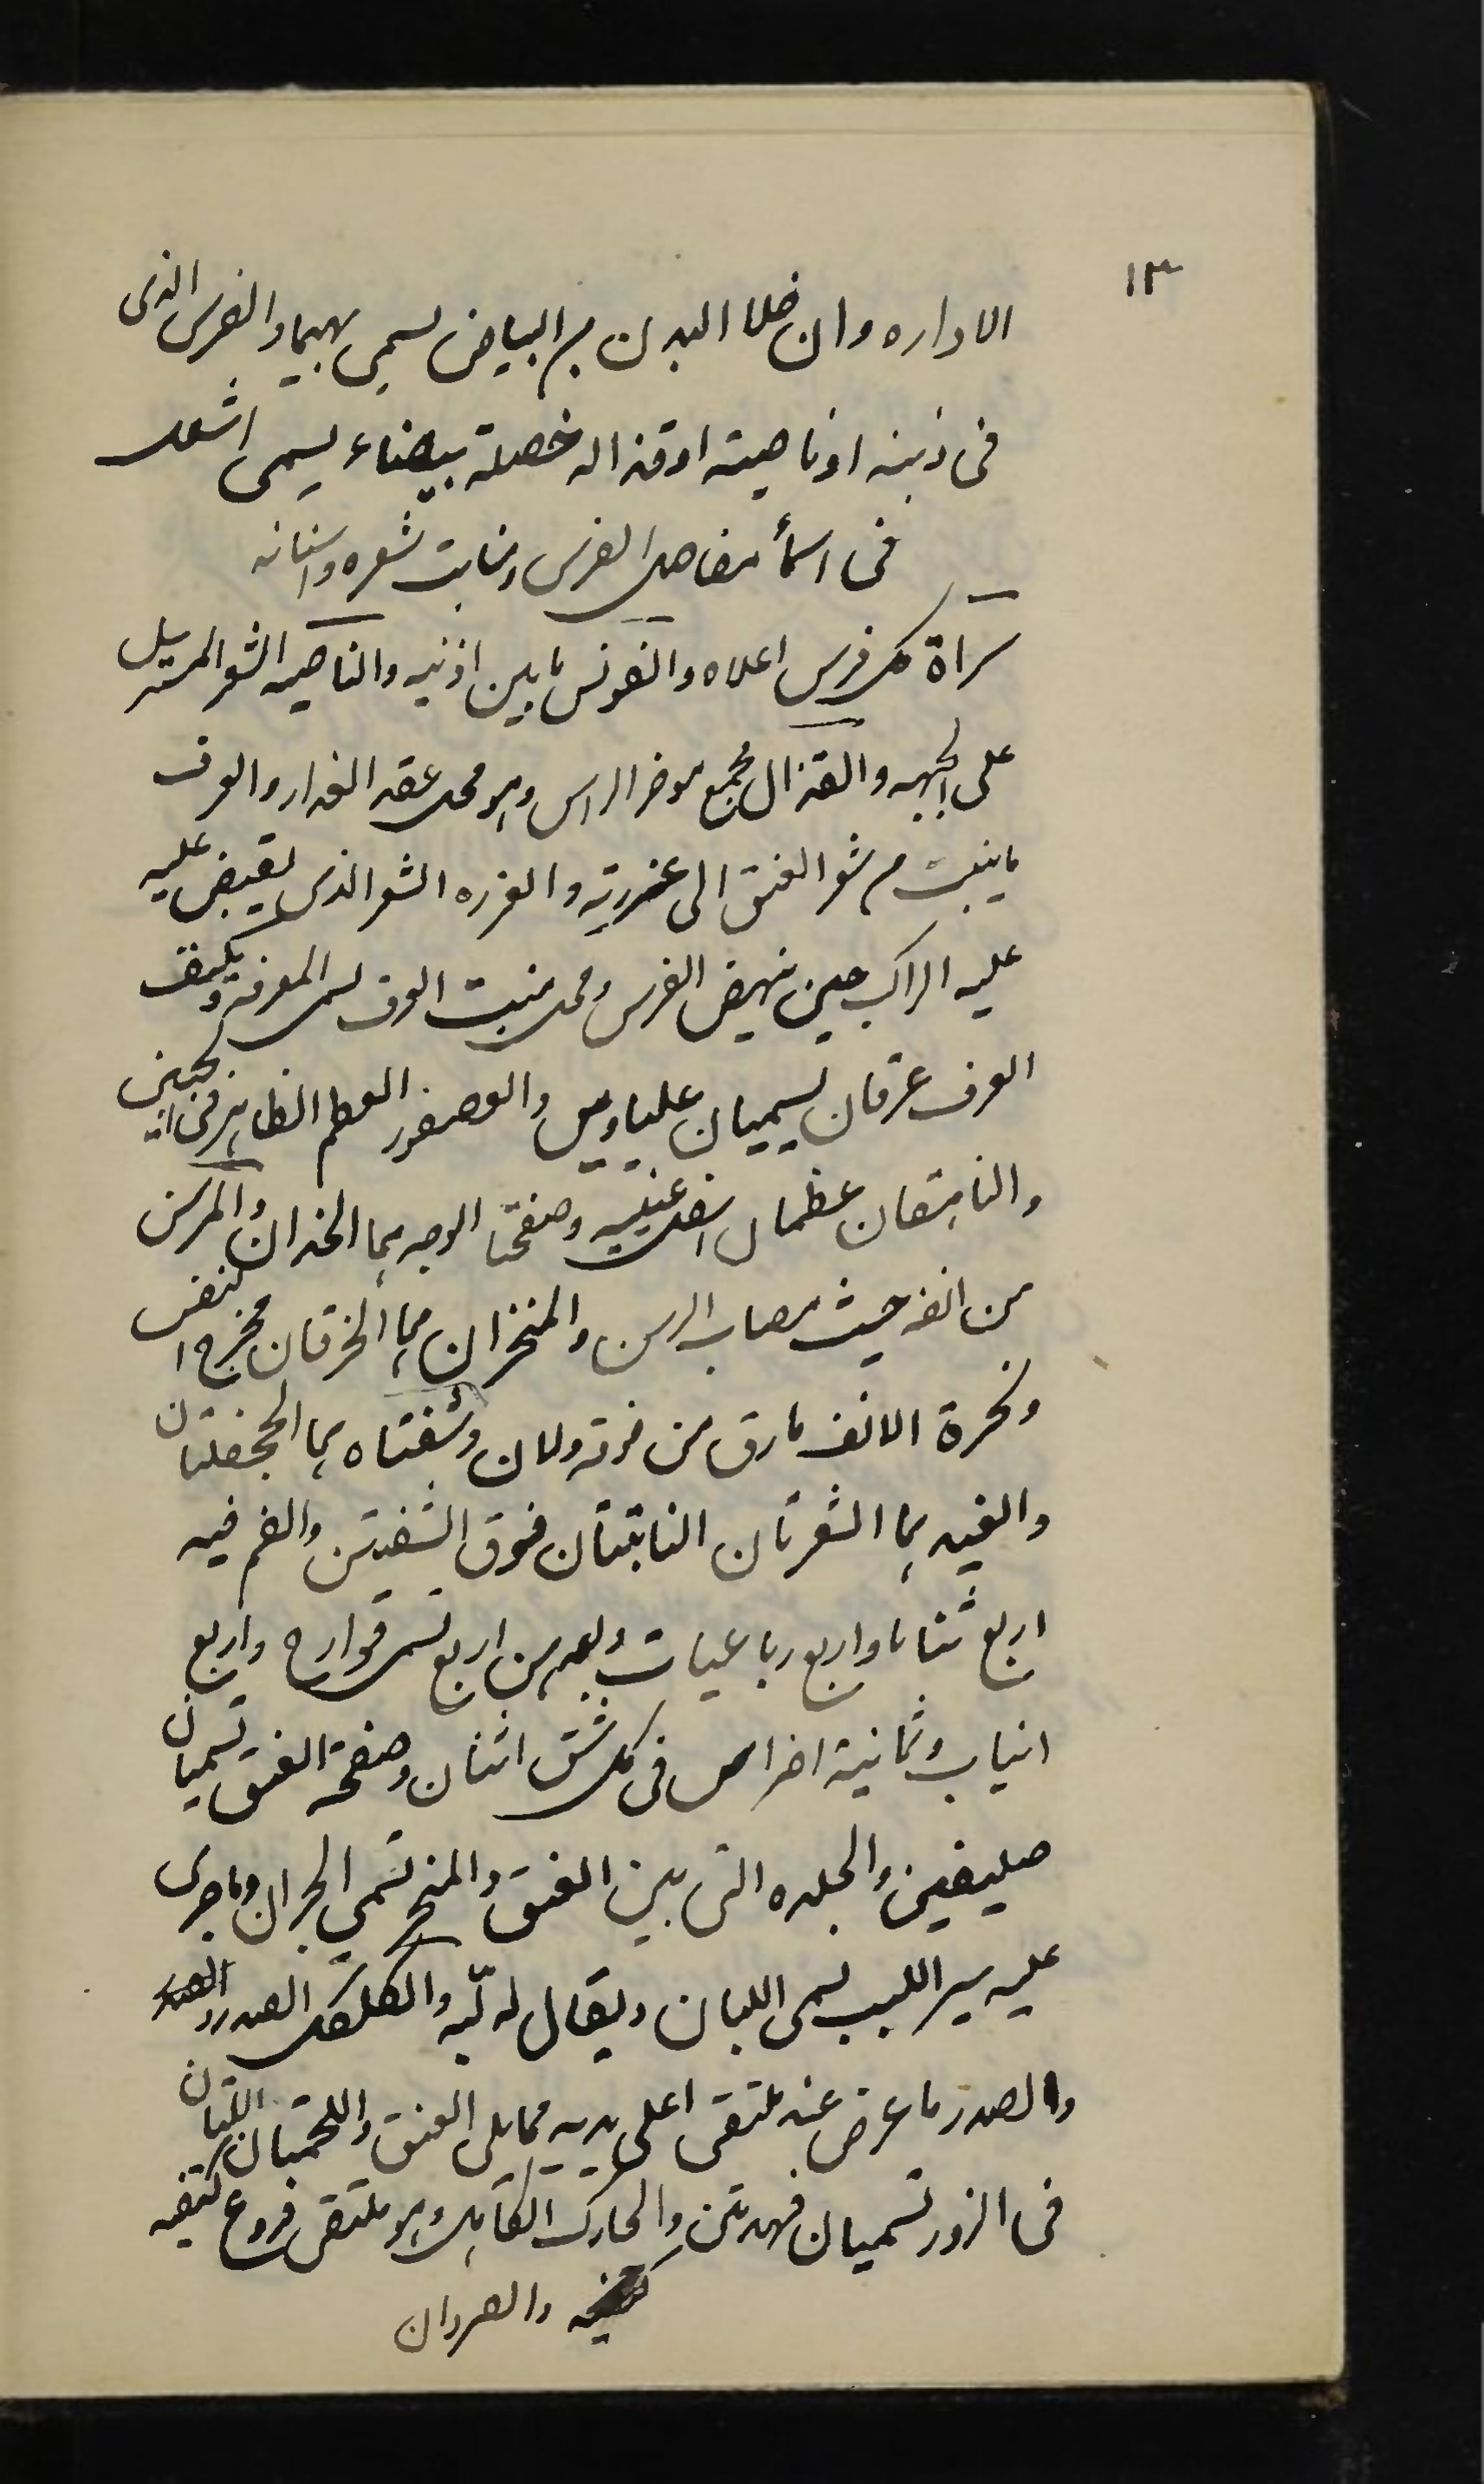 ١٣
الاداره وان خلا البدن من البياض يسمى بهيما والفرس الذى
فى ذنبه او ناصيته او قذاله خصلة بيضاء يسمى اشعل
فى اسمأ مفاصل الفرس ومنابت شعره واسنانه
سراة كل فرس اعلاه والقونس مابين اذنيه والناصيه الشعر المسترسل
على الجبهه والقذال مجمع موخر الراس وهو محل عقد العذار والعرف
ماينبت من شعر العنق الى عذرته والعزره الشعر الذى يقبض عليه
عليه الراكب حين ينهض الفرس ومحل منبت العرف يسمى المعرفة ويكنف
العرف عرقان يسميان علباوين والعصفور العظم الظاهر فى الجبين
والناهقان عظمان اسفل عينيه وصفحتا الوجه هما الخدان والمرسن
من انفه حيث مصاب الرسن والمنخران هما الخرقان مخرج النفس
ونخرة الانف مارق من فوقه ولان وشفتاه هما الجحفلتان
والفيد هما الشعرتان النابتتان فوق الشفتين والفم فيه
اربع ثنايا واربع رباعيات وبعدهن اربع تسمى قوارح واربع
انياب وثمانية اضراس فى كل شق اثنان وصفحة العنق تسميان
صليفين والجلده التى بين العنق والمنحر تسمي الجران وماجرى
عليه سير اللبب يسمى اللبان ويقال له لبّه والكلكل الصدر
والصدر ما عرض عند ملتقى اعلى يديه ممايلى العنق واللحمتان اللتان
فى الزور تسميان فهدتين والحارك الكاهل وهو ملتقى فروع كتفيه
والصردان